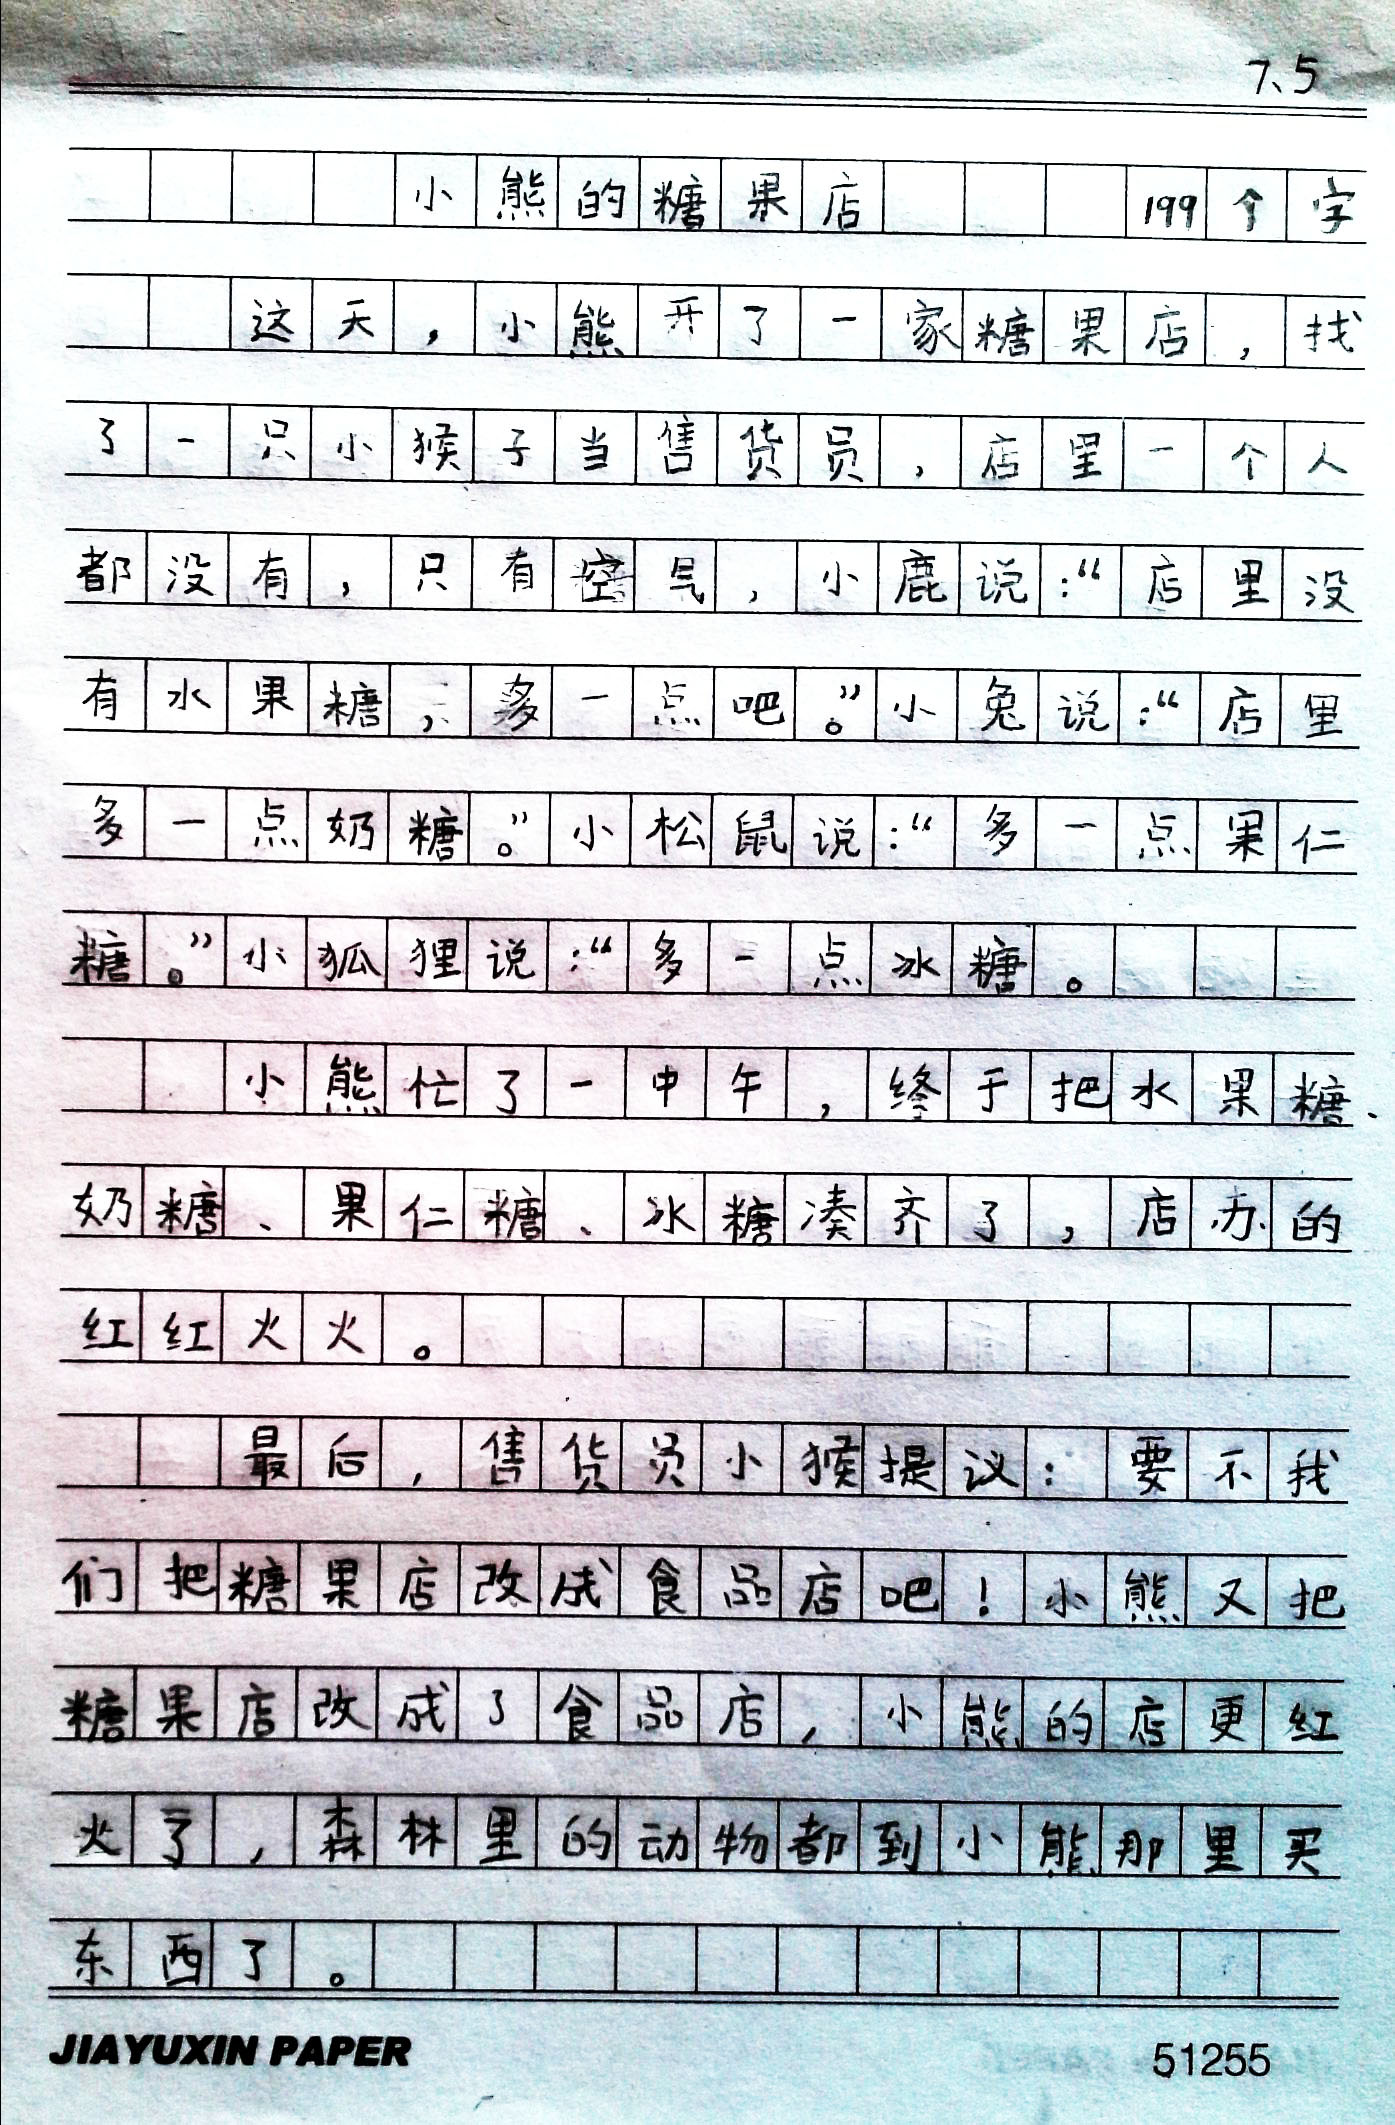 7、5
小熊的糖果店 199个字
这天，小熊开了一家糖果店，找
了一只小猴子当售货员，店里一个人
都没有，只有空气，小鹿说：“店里没
有水果糖，多一点吧。”小兔说：“店里
多一点奶糖。”小松鼠说：“多一点果仁
糖。”小狐狸说：“多一点冰糖。
小熊忙了一中午，终于把水果糖、
奶糖、果仁糖、冰糖凑齐了，店办的
红红火火。
最后，售货员小猴提议：要不我
们把糖果店改成食品店吧！小熊又把
糖果店改成了食品店，小熊的店更红
火了，森林里的动物都到小熊那里买
东西了。
JIAYUXIN PAPER 51255